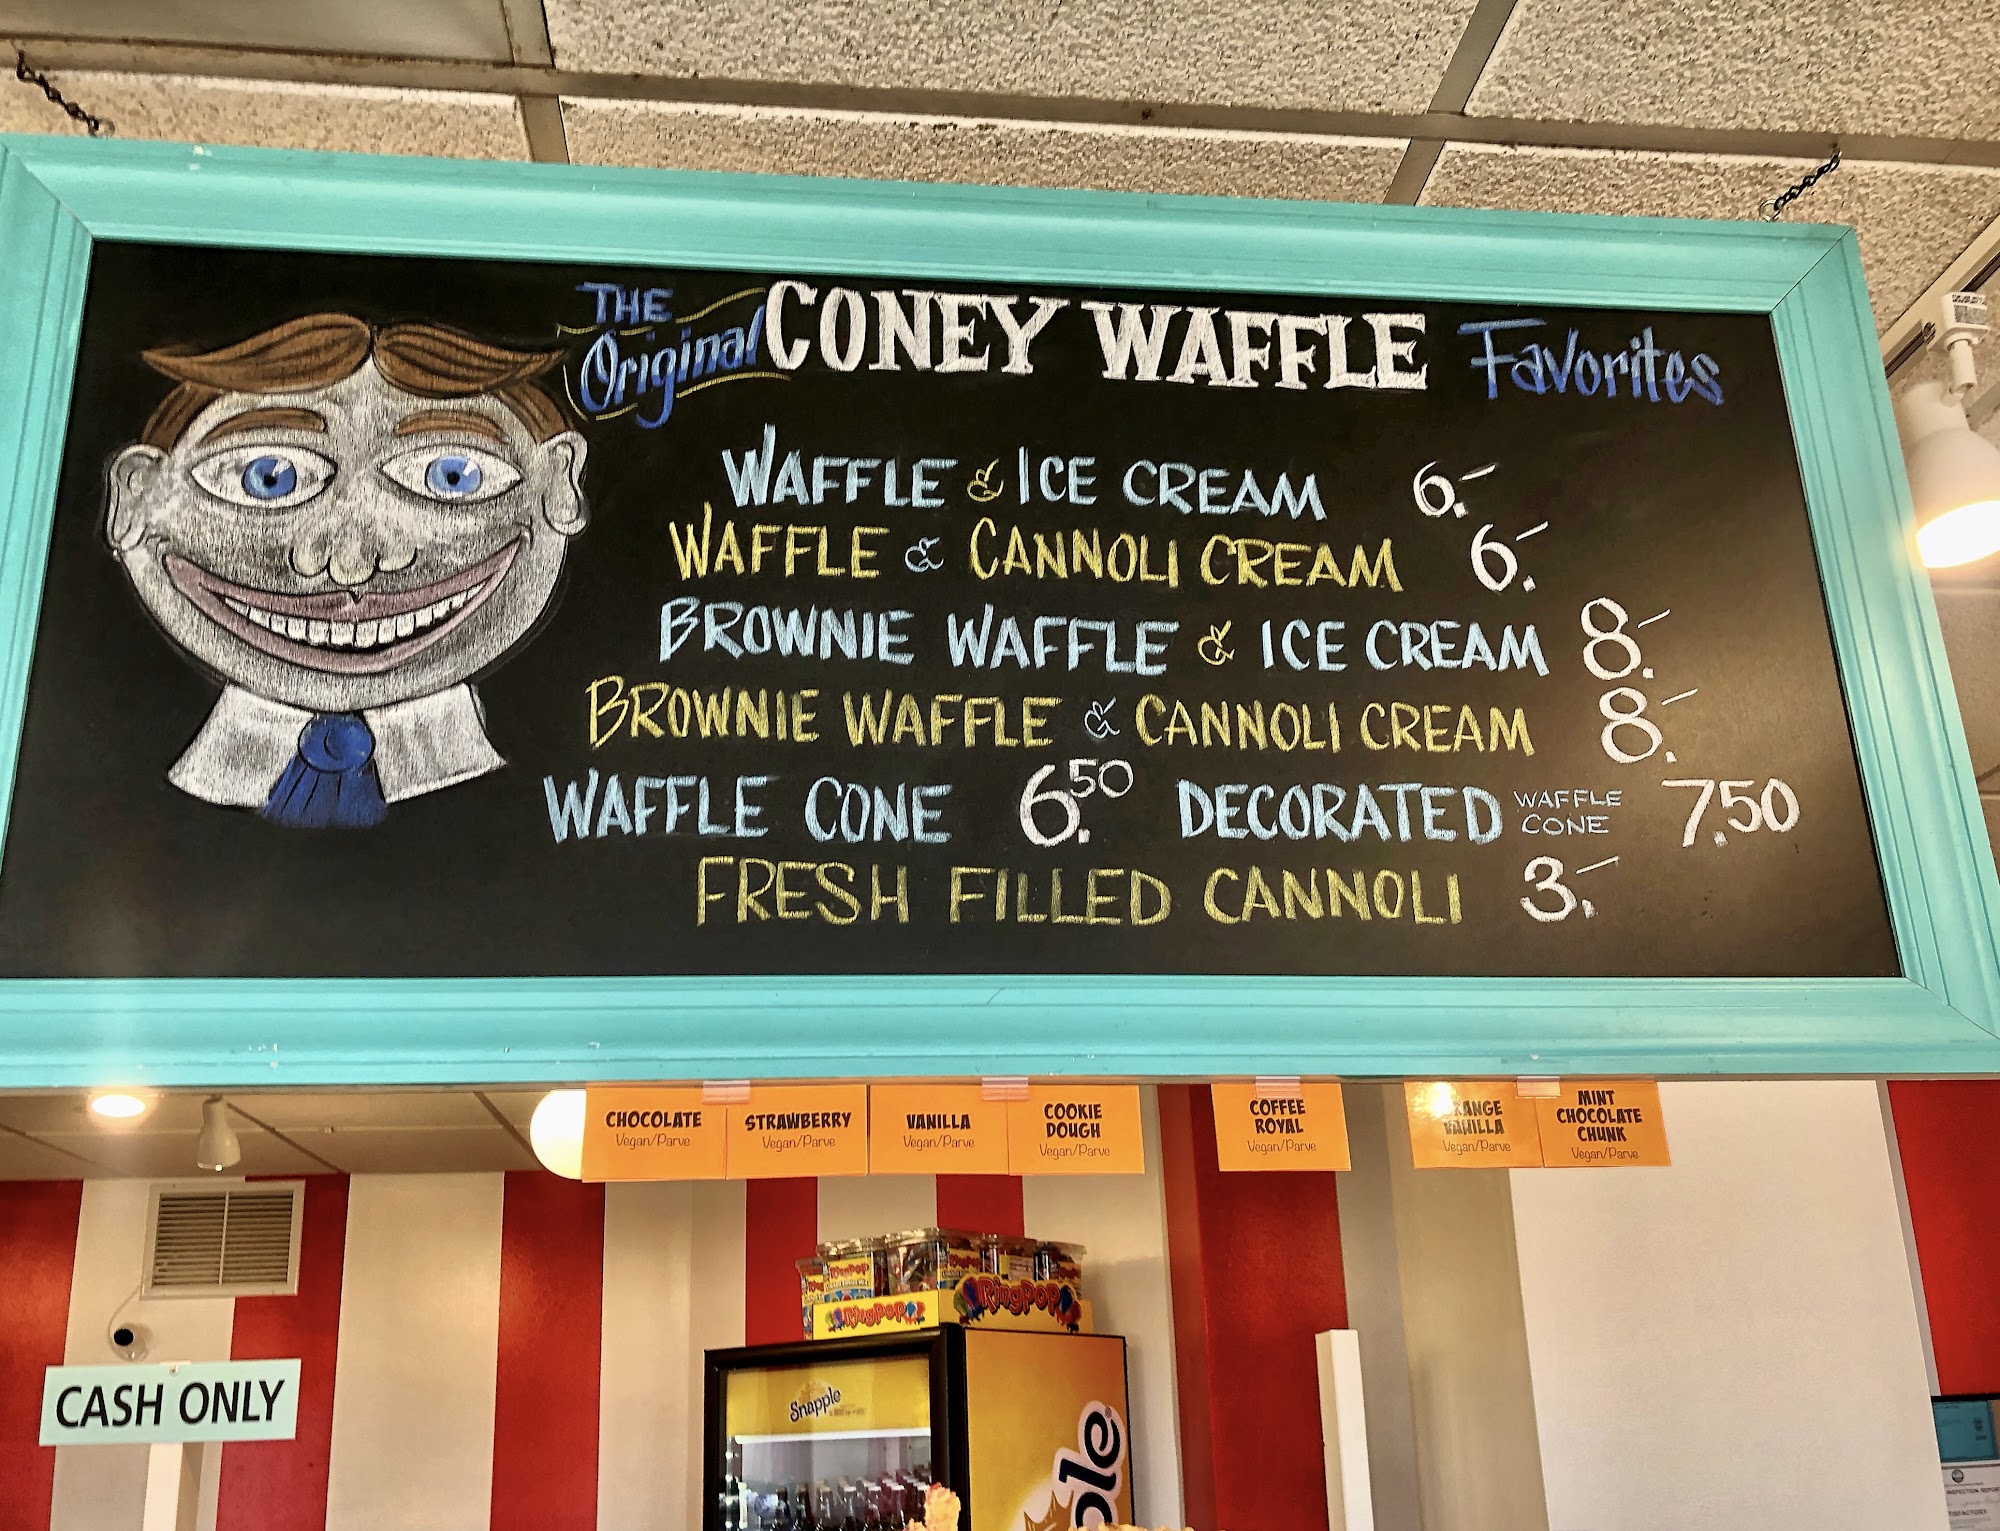 THE Original CONEY WAFFLE Favorites
WAFFLE & ICE CREAM 6.-
WAFFLE & CANNOLI CREAM 6.-
BROWNIE WAFFLE & ICE CREAM 8.-
BROWNIE WAFFLE & CANNOLI CREAM 8.-
WAFFLE CONE 6.50 DECORATED WAFFLE CONE 7.50
FRESH FILLED CANNOLI 3.-
CHOCOLATE
Vegan/Parve
STRAWBERRY
Vegan/Parve
VANILLA
Vegan/Parve
COOKIE
DOUGH
Vegan/Parve
COFFEE
ROYAL
Vegan/Parve
VANILLA
Vegan/Parve
MINT
CHOCOLATE
CHUNK
Vegan/Parve
RingPop
RingPop
RingPop
CASH ONLY
Snapple